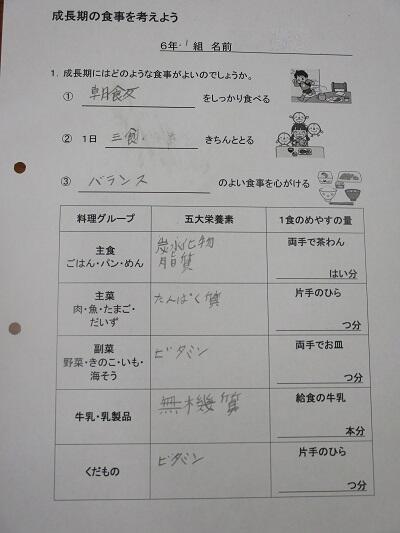 成長期の食事を考えよう
6年・1 組 名前
1. 成長期にはどのような食事がよいのでしょうか。
① 朝食 をしっかり食べる
② 1日 三食 きちんととる
③ バランス のよい食事を心がける
料理グループ 五大栄養素 1食のめやすの量
主食 炭水化物 両手で茶わん
ごはん・パン・めん 脂質 はい分
主菜 たんぱく質 片手のひら
肉・魚・たまご・
だいず つ分
副菜 ビタミン 両手でお皿
野菜・きのこ・いも・
海そう つ分
牛乳・乳製品 無機質 給食の牛乳
本分
くだもの ビタミン 片手のひら
つ分